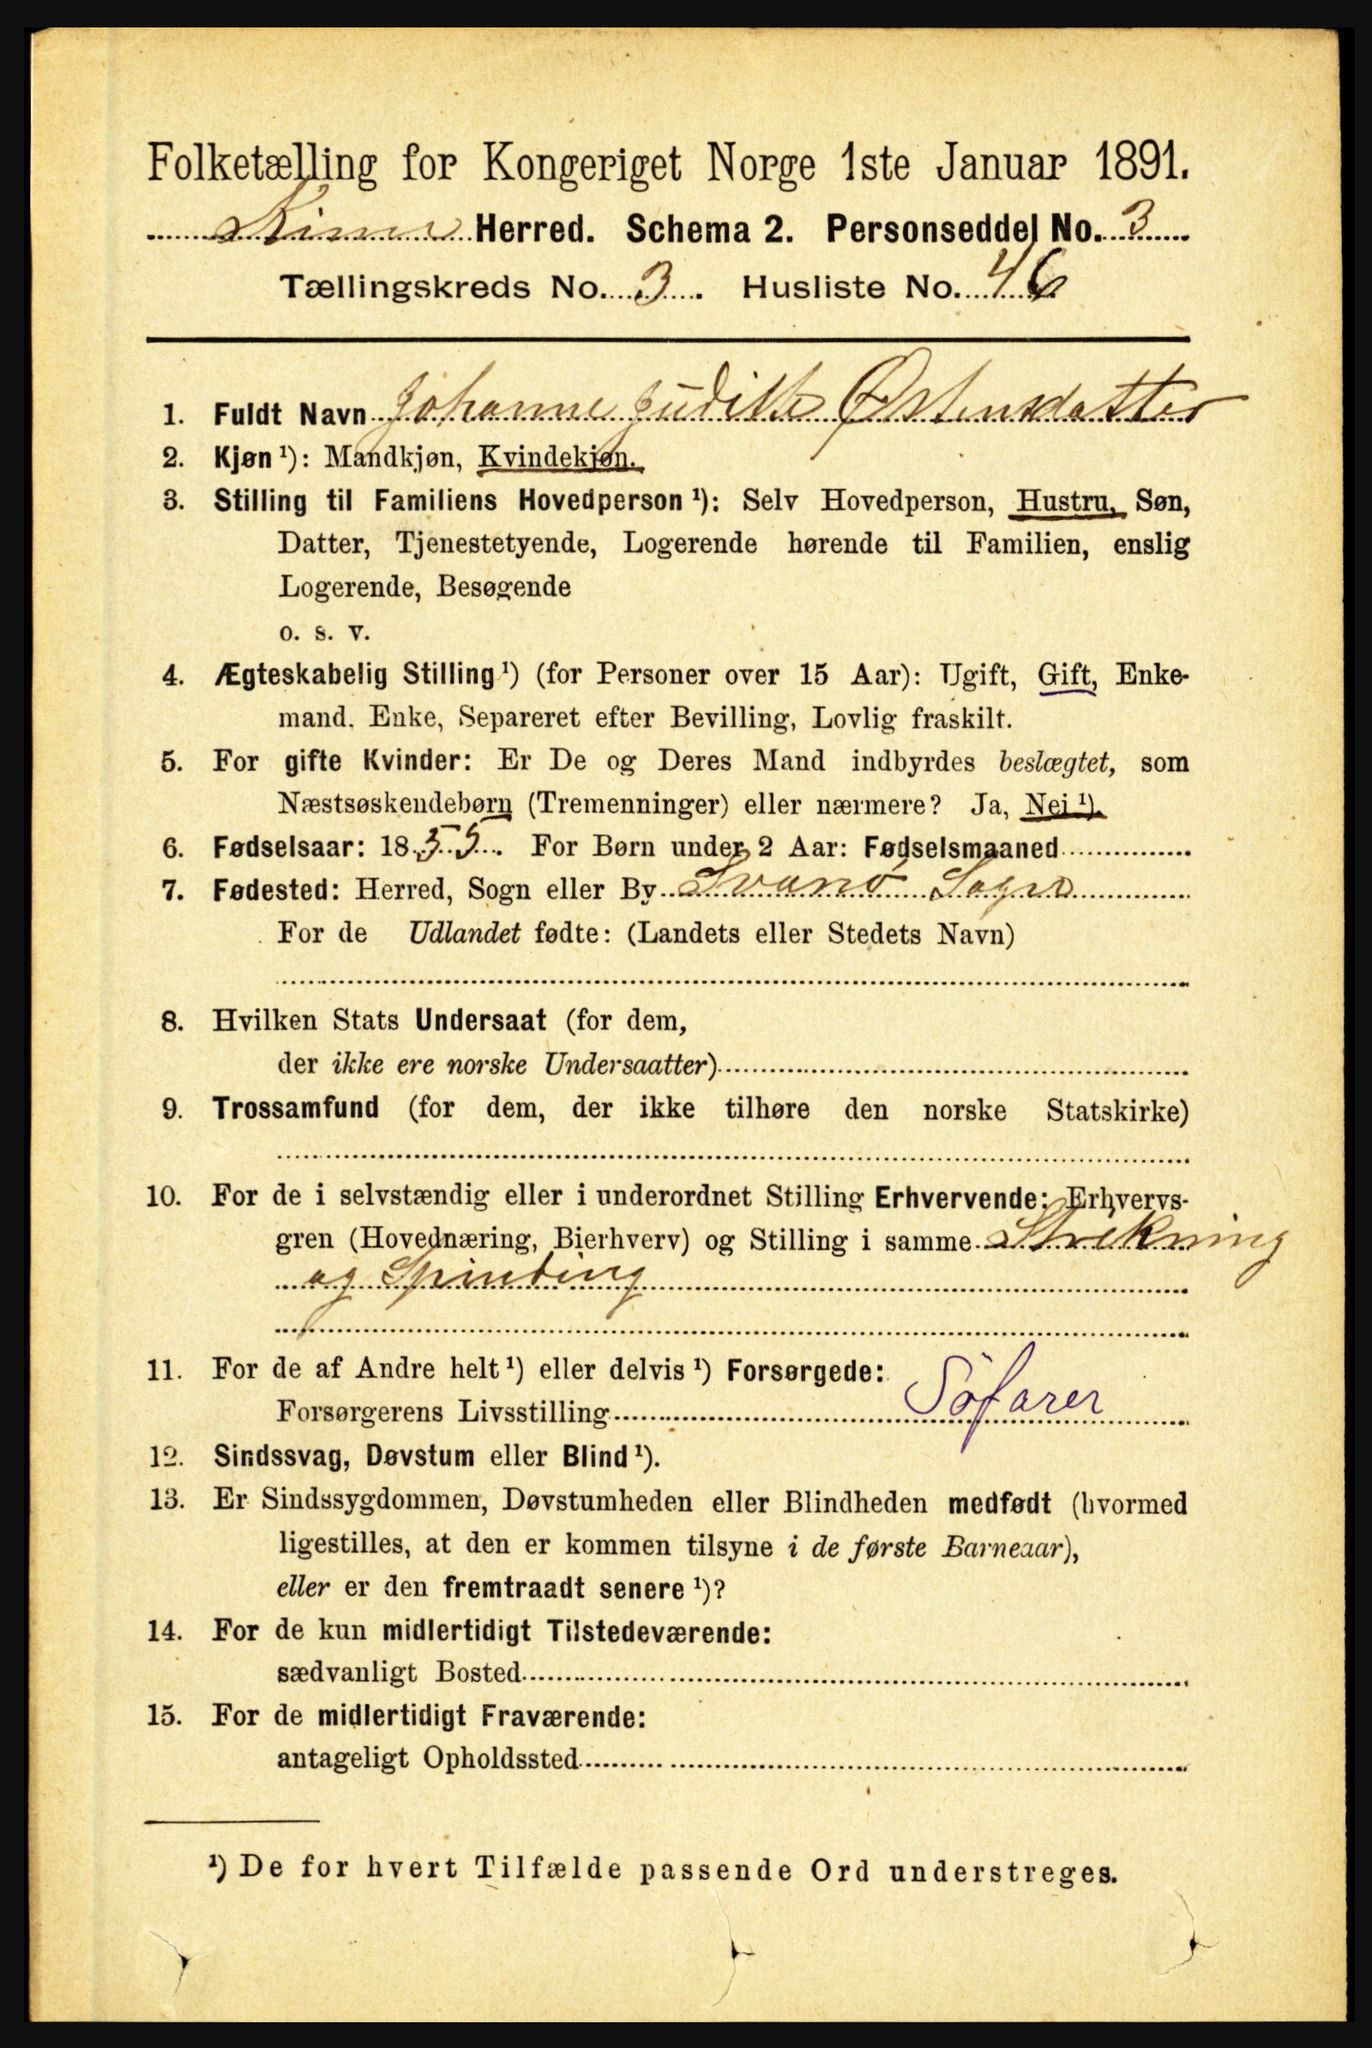 Folketælling for Kongeriget Norge 1ste Januar 1891.
Kinn Herred. Schema 2. Personseddel No. 3
Tællingskreds No. 3. Husliste No. 46
1. Fuldt Navn Johanne Judith Østensdatter
2. Kjøn ¹): Mandkjøn, Kvindekjøn.
3. Stilling til Familiens Hovedperson ¹): Selv Hovedperson, Hustru, Søn,
Datter, Tjenestetyende, Logerende hørende til Familien, enslig
Logerende, Besøgende
o. s. v.
4. Ægteskabelig Stilling ¹) (for Personer over 15 Aar): Ugift, Gift, Enke-
mand, Enke, Separeret efter Bevilling, Lovlig fraskilt.
5. For gifte Kvinder: Er De og Deres Mand indbyrdes beslægtet, som
Næstsøskendebørn (Tremenninger) eller nærmere? Ja, Nei ¹).
6. Fødselsaar: 1855. For Børn under 2 Aar: Fødselsmaaned
7. Fødested: Herred, Sogn eller By Svanø Sogn
For de Udlandet fødte: (Landets eller Stedets Navn)
8. Hvilken Stats Undersaat (for dem,
der ikke ere norske Undersaatter)
9. Trossamfund (for dem, der ikke tilhøre den norske Statskirke)
10. For de i selvstændig eller i underordnet Stilling Erhvervende: Erhvervs-
gren (Hovednæring, Bierhverv) og Stilling i samme Strikning
og Spinding
11. For de af Andre helt ¹) eller delvis ¹) Forsørgede:
Forsørgerens Livsstilling Söfarer
12. Sindssvag, Døvstum eller Blind ¹).
13. Er Sindssygdommen, Døvstumheden eller Blindheden medfødt (hvormed
ligestilles, at den er kommen tilsyne i de første Barneaar),
eller er den fremtraadt senere ¹)?
14. For de kun midlertidigt Tilstedeværende:
sædvanligt Bosted
15. For de midlertidigt Fraværende:
antageligt Opholdssted
¹) De for hvert Tilfælde passende Ord understreges.